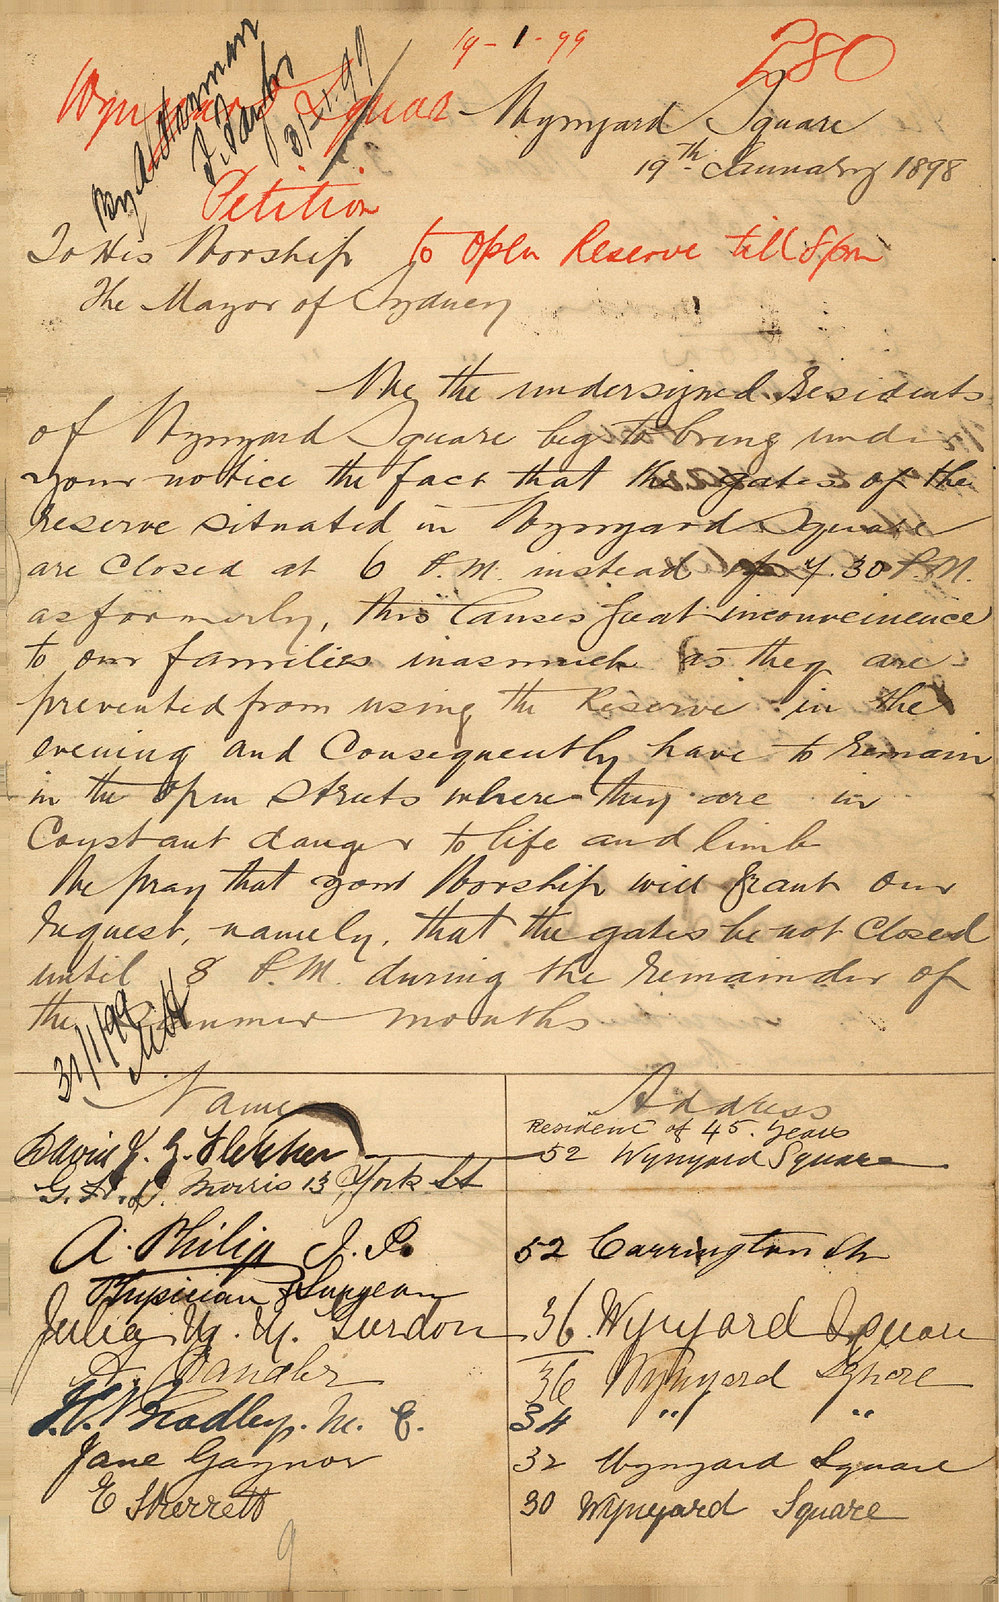 19-1-99
280
Wynyard Square
By Alderman
J. Taylor
31-1.99
Wynyard Square
19th January 1898
Petition
To His Worship
to open Reserve till 8pm
The Mayor of Sydney
We the undersigned Residents
of Wynyard Square beg to bring under
your notice the fact that the gates of the
reserve situated in Wynyard Square
are Closed at 6 P.M. instead of 7.30 P.M.
as formerly, this Causes great inconveinence
to our families inasmuch as they are
prevented from using the Reserve in the
evening and Consequently have to remain
in the open Streets where they are in
Constant danger to life and limb
We pray that your Worship will grant our
request, namely, that the gates be not Closed
until 8 P.M. during the remainder of
the Summer months
31/1/99
Name
Address
David J. G. Fletcher
Resident of 45. Years
52 Wynyard Square
G. H. D. Morris 13 York St
A. Philip J. P.
52 Carrington St
Physician & Surgeon
Julia M. M. Gurdon
36. Wynyard Square
36 Wynyard Square
H. Bradley. M. E.
34 " "
Jane Gaynor
32 Wynyard Square
E Skerrett
30 Wynyard Square
9